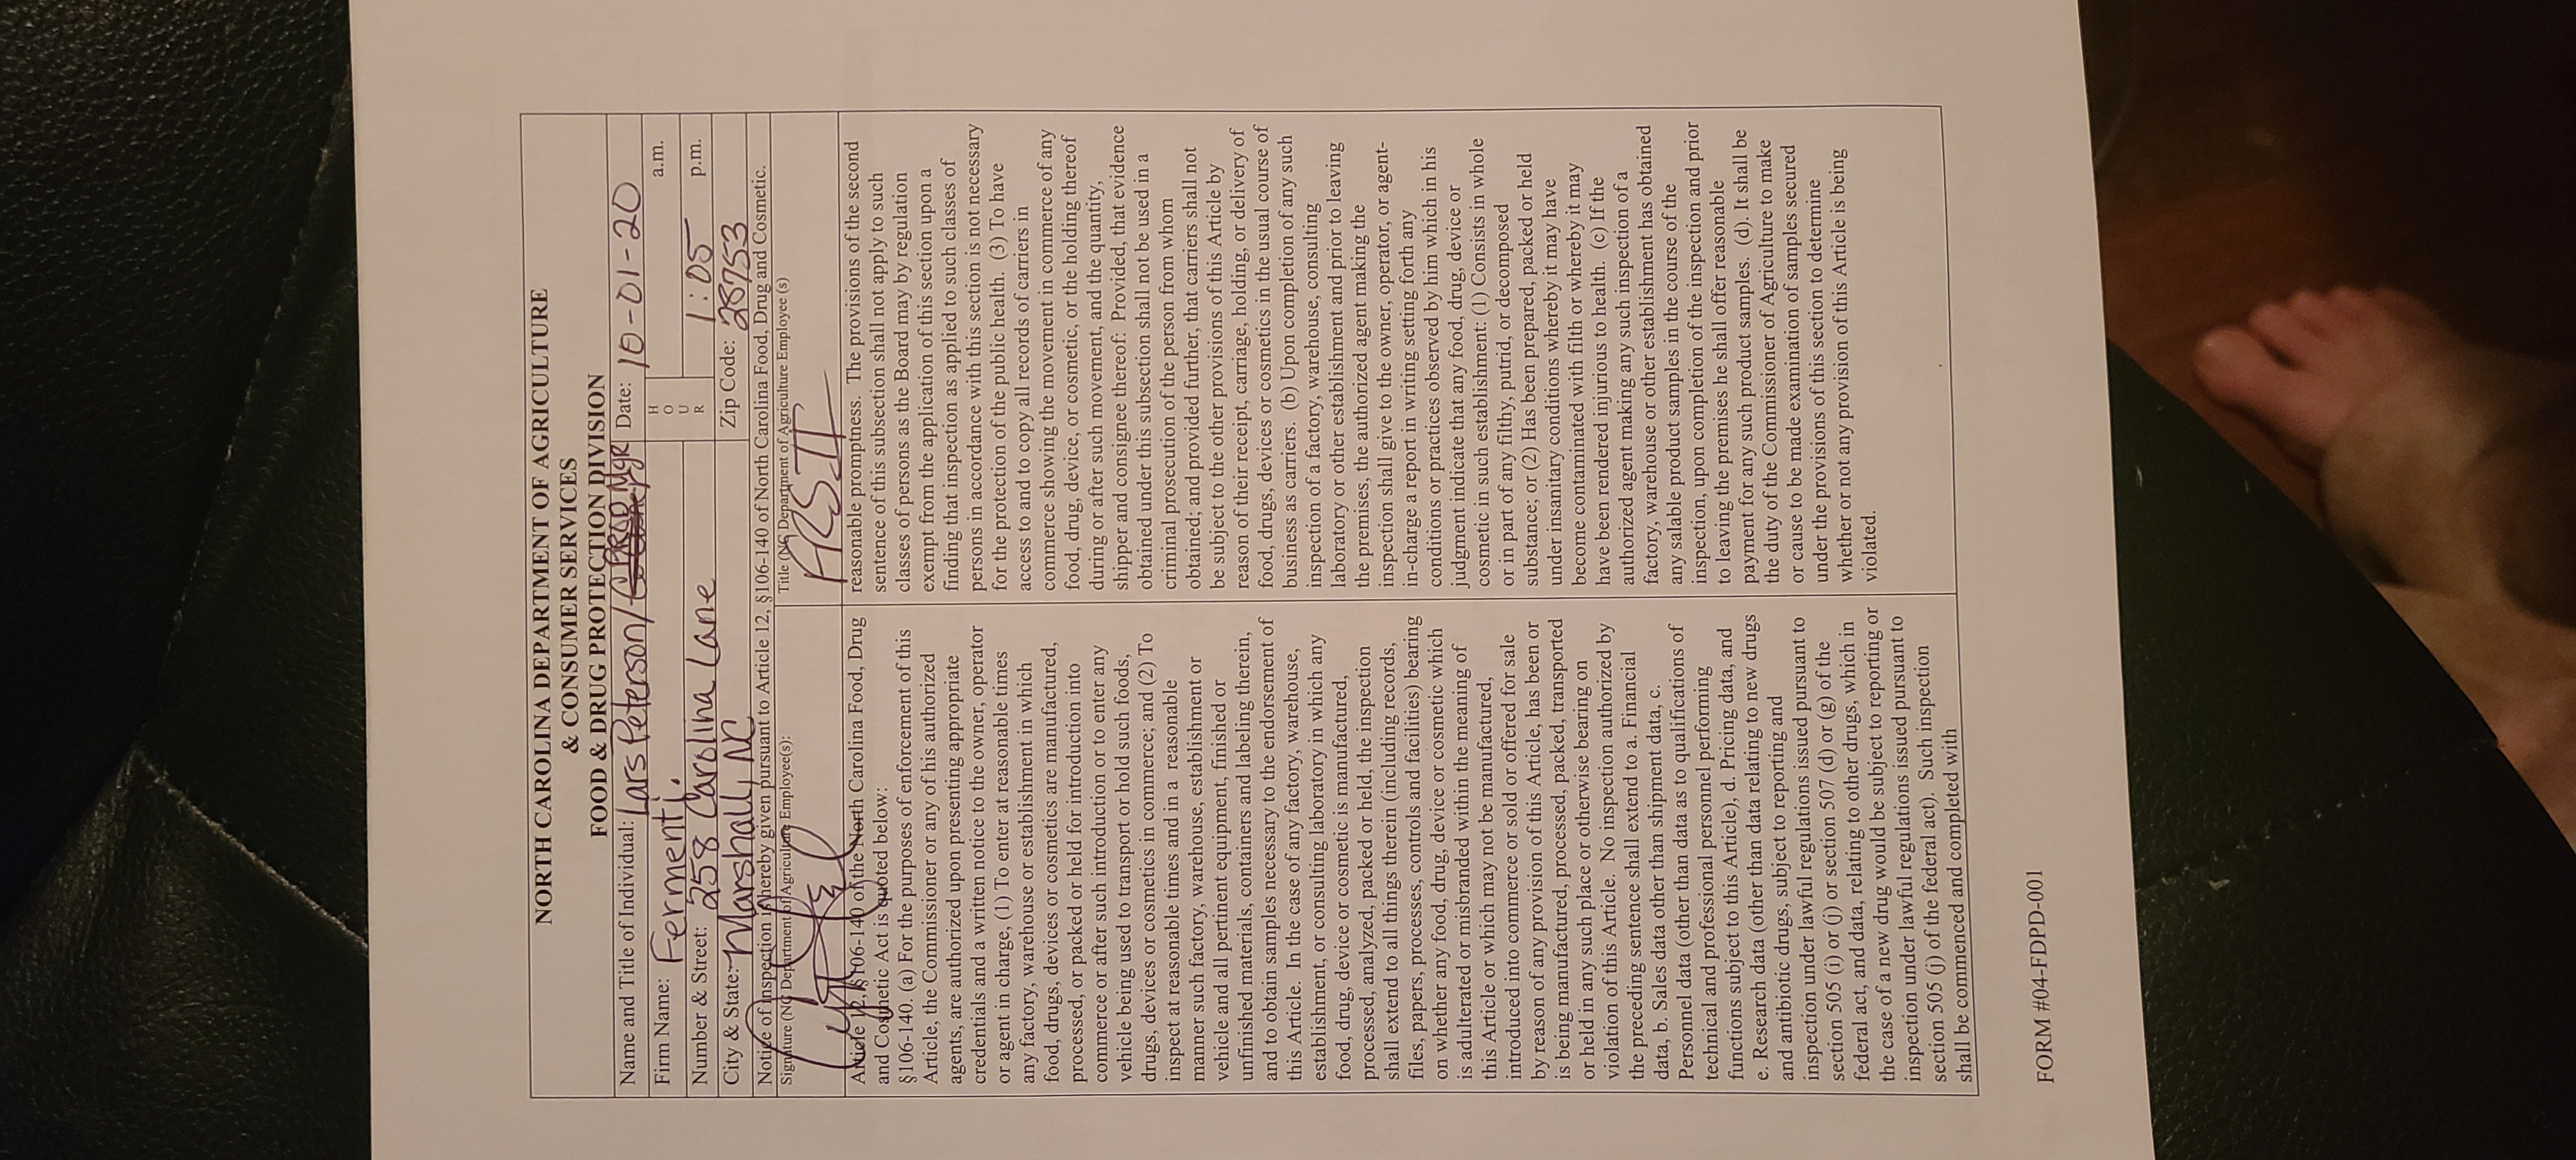 NORTH CAROLINA DEPARTMENT OF AGRICULTURE
& CONSUMER SERVICES
FOOD & DRUG PROTECTION DIVISION
Name and Title of Individual: Lars Peterson/ PROD Mgr Date: 10-01-20
Firm Name: Fermenti. HOUR a.m.
Number & Street: 258 Carolina Lane 1:05 p.m.
City & State: Marshall, NC Zip Code: 28753
Notice of Inspection is hereby given pursuant to Article 12, §106-140 of North Carolina Food, Drug and Cosmetic.
Signature (NC Department of Agriculture Employee(s): Title (NC Department of Agriculture Employee (s)
Article 12, §106-140 of the North Carolina Food, Drug
and Cosmetic Act is quoted below:
§106-140. (a) For the purposes of enforcement of this
Article, the Commissioner or any of his authorized
agents, are authorized upon presenting appropriate
credentials and a written notice to the owner, operator
or agent in charge, (1) To enter at reasonable times
any factory, warehouse or establishment in which
food, drugs, devices or cosmetics are manufactured,
processed, or packed or held for introduction into
commerce or after such introduction or to enter any
vehicle being used to transport or hold such foods,
drugs, devices or cosmetics in commerce; and (2) To
inspect at reasonable times and in a reasonable
manner such factory, warehouse, establishment or
vehicle and all pertinent equipment, finished or
unfinished materials, containers and labeling therein,
and to obtain samples necessary to the endorsement of
this Article. In the case of any factory, warehouse,
establishment, or consulting laboratory in which any
food, drug, device or cosmetic is manufactured,
processed, analyzed, packed or held, the inspection
shall extend to all things therein (including records,
files, papers, processes, controls and facilities) bearing
on whether any food, drug, device or cosmetic which
is adulterated or misbranded within the meaning of
this Article or which may not be manufactured,
introduced into commerce or sold or offered for sale
by reason of any provision of this Article, has been or
is being manufactured, processed, packed, transported
or held in any such place or otherwise bearing on
violation of this Article. No inspection authorized by
the preceding sentence shall extend to a. Financial
data, b. Sales data other than shipment data, c.
Personnel data (other than data as to qualifications of
technical and professional personnel performing
functions subject to this Article), d. Pricing data, and
e. Research data (other than data relating to new drugs
and antibiotic drugs, subject to reporting and
inspection under lawful regulations issued pursuant to
section 505 (i) or (j) or section 507 (d) or (g) of the
federal act, and data, relating to other drugs, which in
the case of a new drug would be subject to reporting or
inspection under lawful regulations issued pursuant to
section 505 (j) of the federal act). Such inspection
shall be commenced and completed with
reasonable promptness. The provisions of the second
sentence of this subsection shall not apply to such
classes of persons as the Board may by regulation
exempt from the application of this section upon a
finding that inspection as applied to such classes of
persons in accordance with this section is not necessary
for the protection of the public health. (3) To have
access to and to copy all records of carriers in
commerce showing the movement in commerce of any
food, drug, device, or cosmetic, or the holding thereof
during or after such movement, and the quantity,
shipper and consignee thereof: Provided, that evidence
obtained under this subsection shall not be used in a
criminal prosecution of the person from whom
obtained; and provided further, that carriers shall not
be subject to the other provisions of this Article by
reason of their receipt, carriage, holding, or delivery of
food, drugs, devices or cosmetics in the usual course of
business as carriers. (b) Upon completion of any such
inspection of a factory, warehouse, consulting
laboratory or other establishment and prior to leaving
the premises, the authorized agent making the
inspection shall give to the owner, operator, or agent-
in-charge a report in writing setting forth any
conditions or practices observed by him which in his
judgment indicate that any food, drug, device or
cosmetic in such establishment: (1) Consists in whole
or in part of any filthy, putrid, or decomposed
substance; or (2) Has been prepared, packed or held
under insanitary conditions whereby it may have
become contaminated with filth or whereby it may
have been rendered injurious to health. (c) If the
authorized agent making any such inspection of a
factory, warehouse or other establishment has obtained
any salable product samples in the course of the
inspection, upon completion of the inspection and prior
to leaving the premises he shall offer reasonable
payment for any such product samples. (d). It shall be
the duty of the Commissioner of Agriculture to make
or cause to be made examination of samples secured
under the provisions of this section to determine
whether or not any provision of this Article is being
violated.
FORM #04-FDPD-001